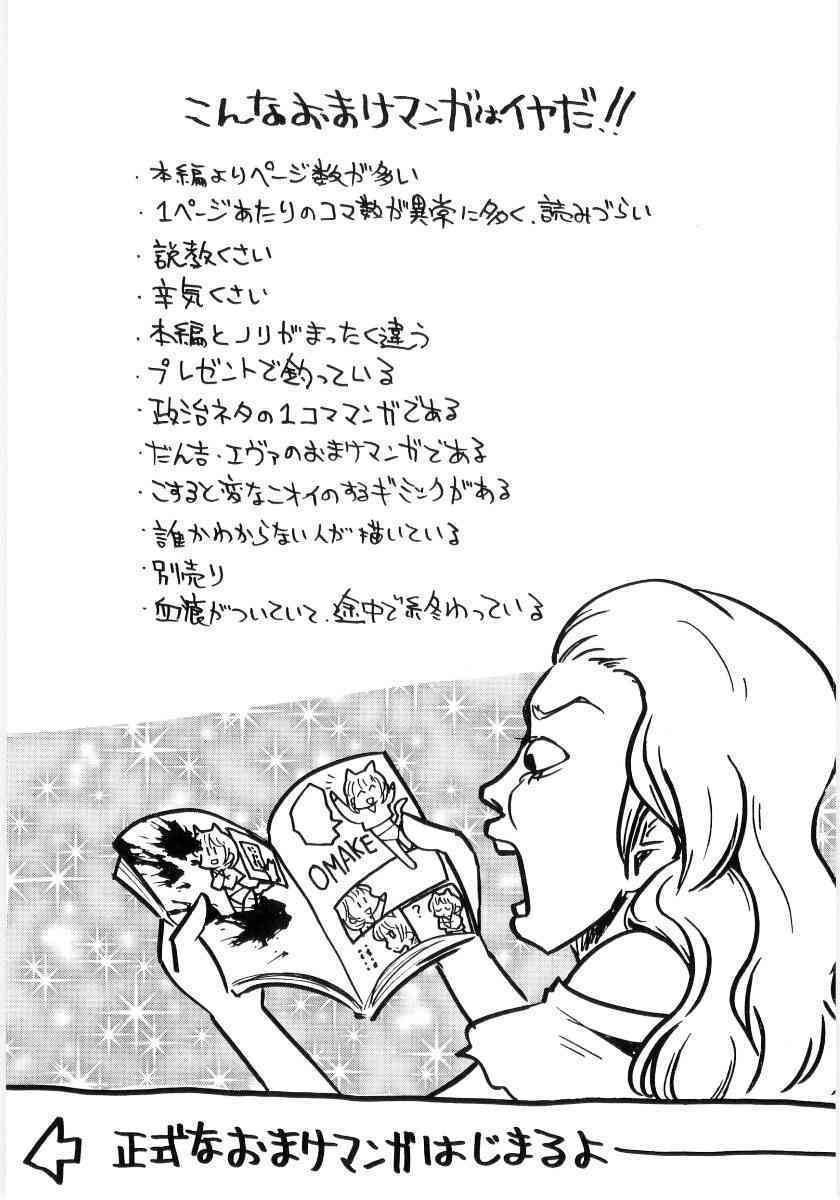 こんなおまけマンガはイヤだ!!
・本編よりページ数が多い
・1ページあたりのコマ数が異常に多く、読みづらい
・説教くさい
・辛気くさい
・本編とノリがまったく違う
・プレゼントで釣っている
・政治ネタの1コママンガである
・だん吉・エヴァのおまけマンガである
・こすると変なニオイのするギミックがある
・誰かわからない人が描いている
・別売り
・血痕がついていて、途中で終わっている
OMAKE
?
正式なおまけマンガはじまるよ